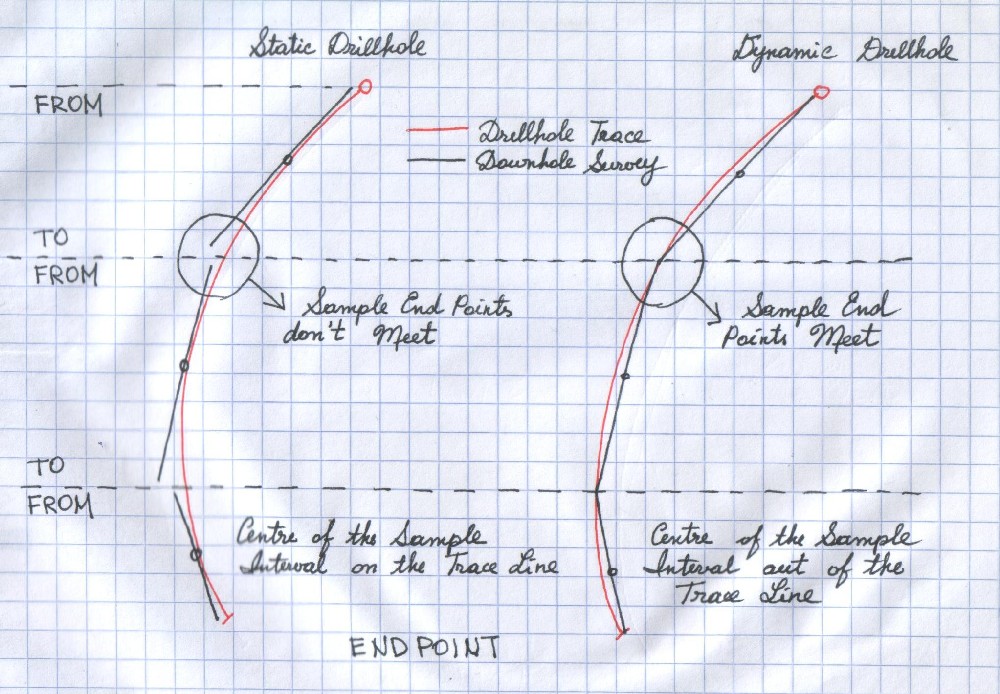 Static Drillhole
Dynamic Drillhole
FROM
Drillhole Trace
Downhole Survey
TO
FROM
Sample End Points
don't Meet
Sample End
Points Meet
TO
FROM
Centre of the Sample
Interval on the Trace Line
Centre of the Sample
Interval out of the
Trace Line
ENDPOINT